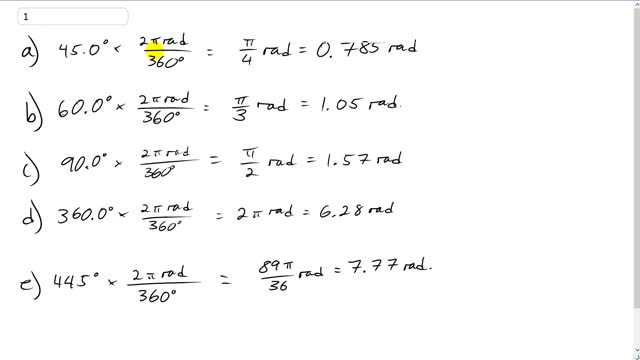 1
a) 45.0° × 2π rad / 360° = π/4 rad = 0.785 rad
b) 60.0° × 2π rad / 360° = π/3 rad = 1.05 rad.
c) 90.0° × 2π rad / 360° = π/2 rad = 1.57 rad
d) 360.0° × 2π rad / 360° = 2π rad = 6.28 rad
e) 445° × 2π rad / 360° = 89π/36 rad = 7.77 rad.